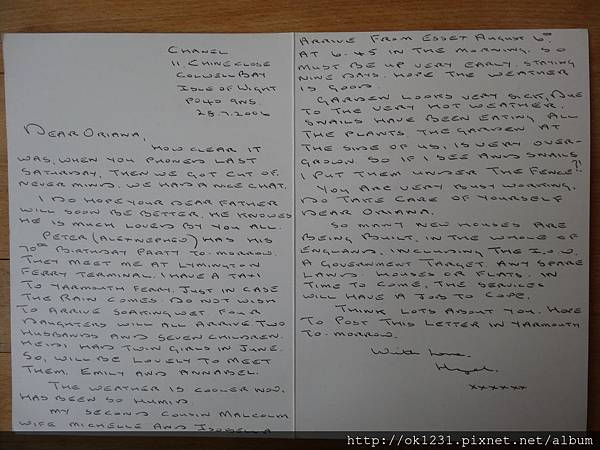 CHANEL
11. CHINE CLOSE
COLWELL BAY
ISLE OF WIGHT
PO40 9NS.
28.7.2006
DEAR ORIANA,
HOW CLEAR IT
WAS, WHEN YOU PHONED LAST
SATURDAY, THEN WE GOT CUT OF.
NEVER MIND. WE HAD A NICE CHAT.
I DO HOPE YOUR DEAR FATHER
WILL SOON BE BETTER. HE KNOWES
HE IS MUCH LOVED BY YOU ALL.
PETER (ALEF NEPHEW) HAS HIS
70TH BIRTHDAY PARTY TO-MORROW.
THEY MEET ME AT LYMINGTON
FERRY TERMINAL. I HAVE A TAXI
TO YARMOUTH FERRY. JUST IN CASE
THE RAIN COMES. DO NOT WISH
TO ARRIVE SOAKING WET FOUR
DAUGHTERS WILL ALL ARRIVE TWO
HUSBANDS AND SEVEN CHILDREN.
HEIDI HAD TWIN GIRLS IN JUNE.
SO, WILL BE LOVELY TO MEET
THEM. EMILY AND ANNABEL.
THE WEATHER IS COOLER NOW.
HAS BEEN SO HUMID
MY SECOND COUSIN MALCOLM
WIFE MICHELLE AND ISOBELLA
ARRIVE FROM ESSET AUGUST 6TH
AT 6.45 IN THE MORNING. SO
MUST BE UP VERY EARLY. STAYING
NINE DAYS. HOPE THE WEATHER
IS GOOD.
GARDEN LOOKS VERY SICK, DUE
TO THE VERY HOT WEATHER.
SNAILS HAVE BEEN EATING ALL
THE PLANTS. THE GARDEN AT
THE SIDE OF US, IS VERY OVER-
GROWN SO IF I SEE AND SNAILS
I PUT THEM UNDER THE FENCE?!
YOU ARE VERY BUSY WORKING.
DO TAKE CARE OF YOURSELF
DEAR ORIANA.
SO MANY NEW HOUSES ARE
BEING BUILT, IN THE WHOLE OF
ENGLAND, INCLUDING THE I.O.W.
A GOVERNMENT TARGET ANY SPARE
LAND. HOUSES OR FLATS. IN
TIME TO COME, THE SERVICES
WILL HAVE A JOB TO COPE.
THINK LOTS ABOUT YOU. HOPE
TO POST THIS LETTER IN YARMOUTH
TO-MORROW.
With love.
Hazel.
xxxxxx
http://ok1231.pixnet.net/album